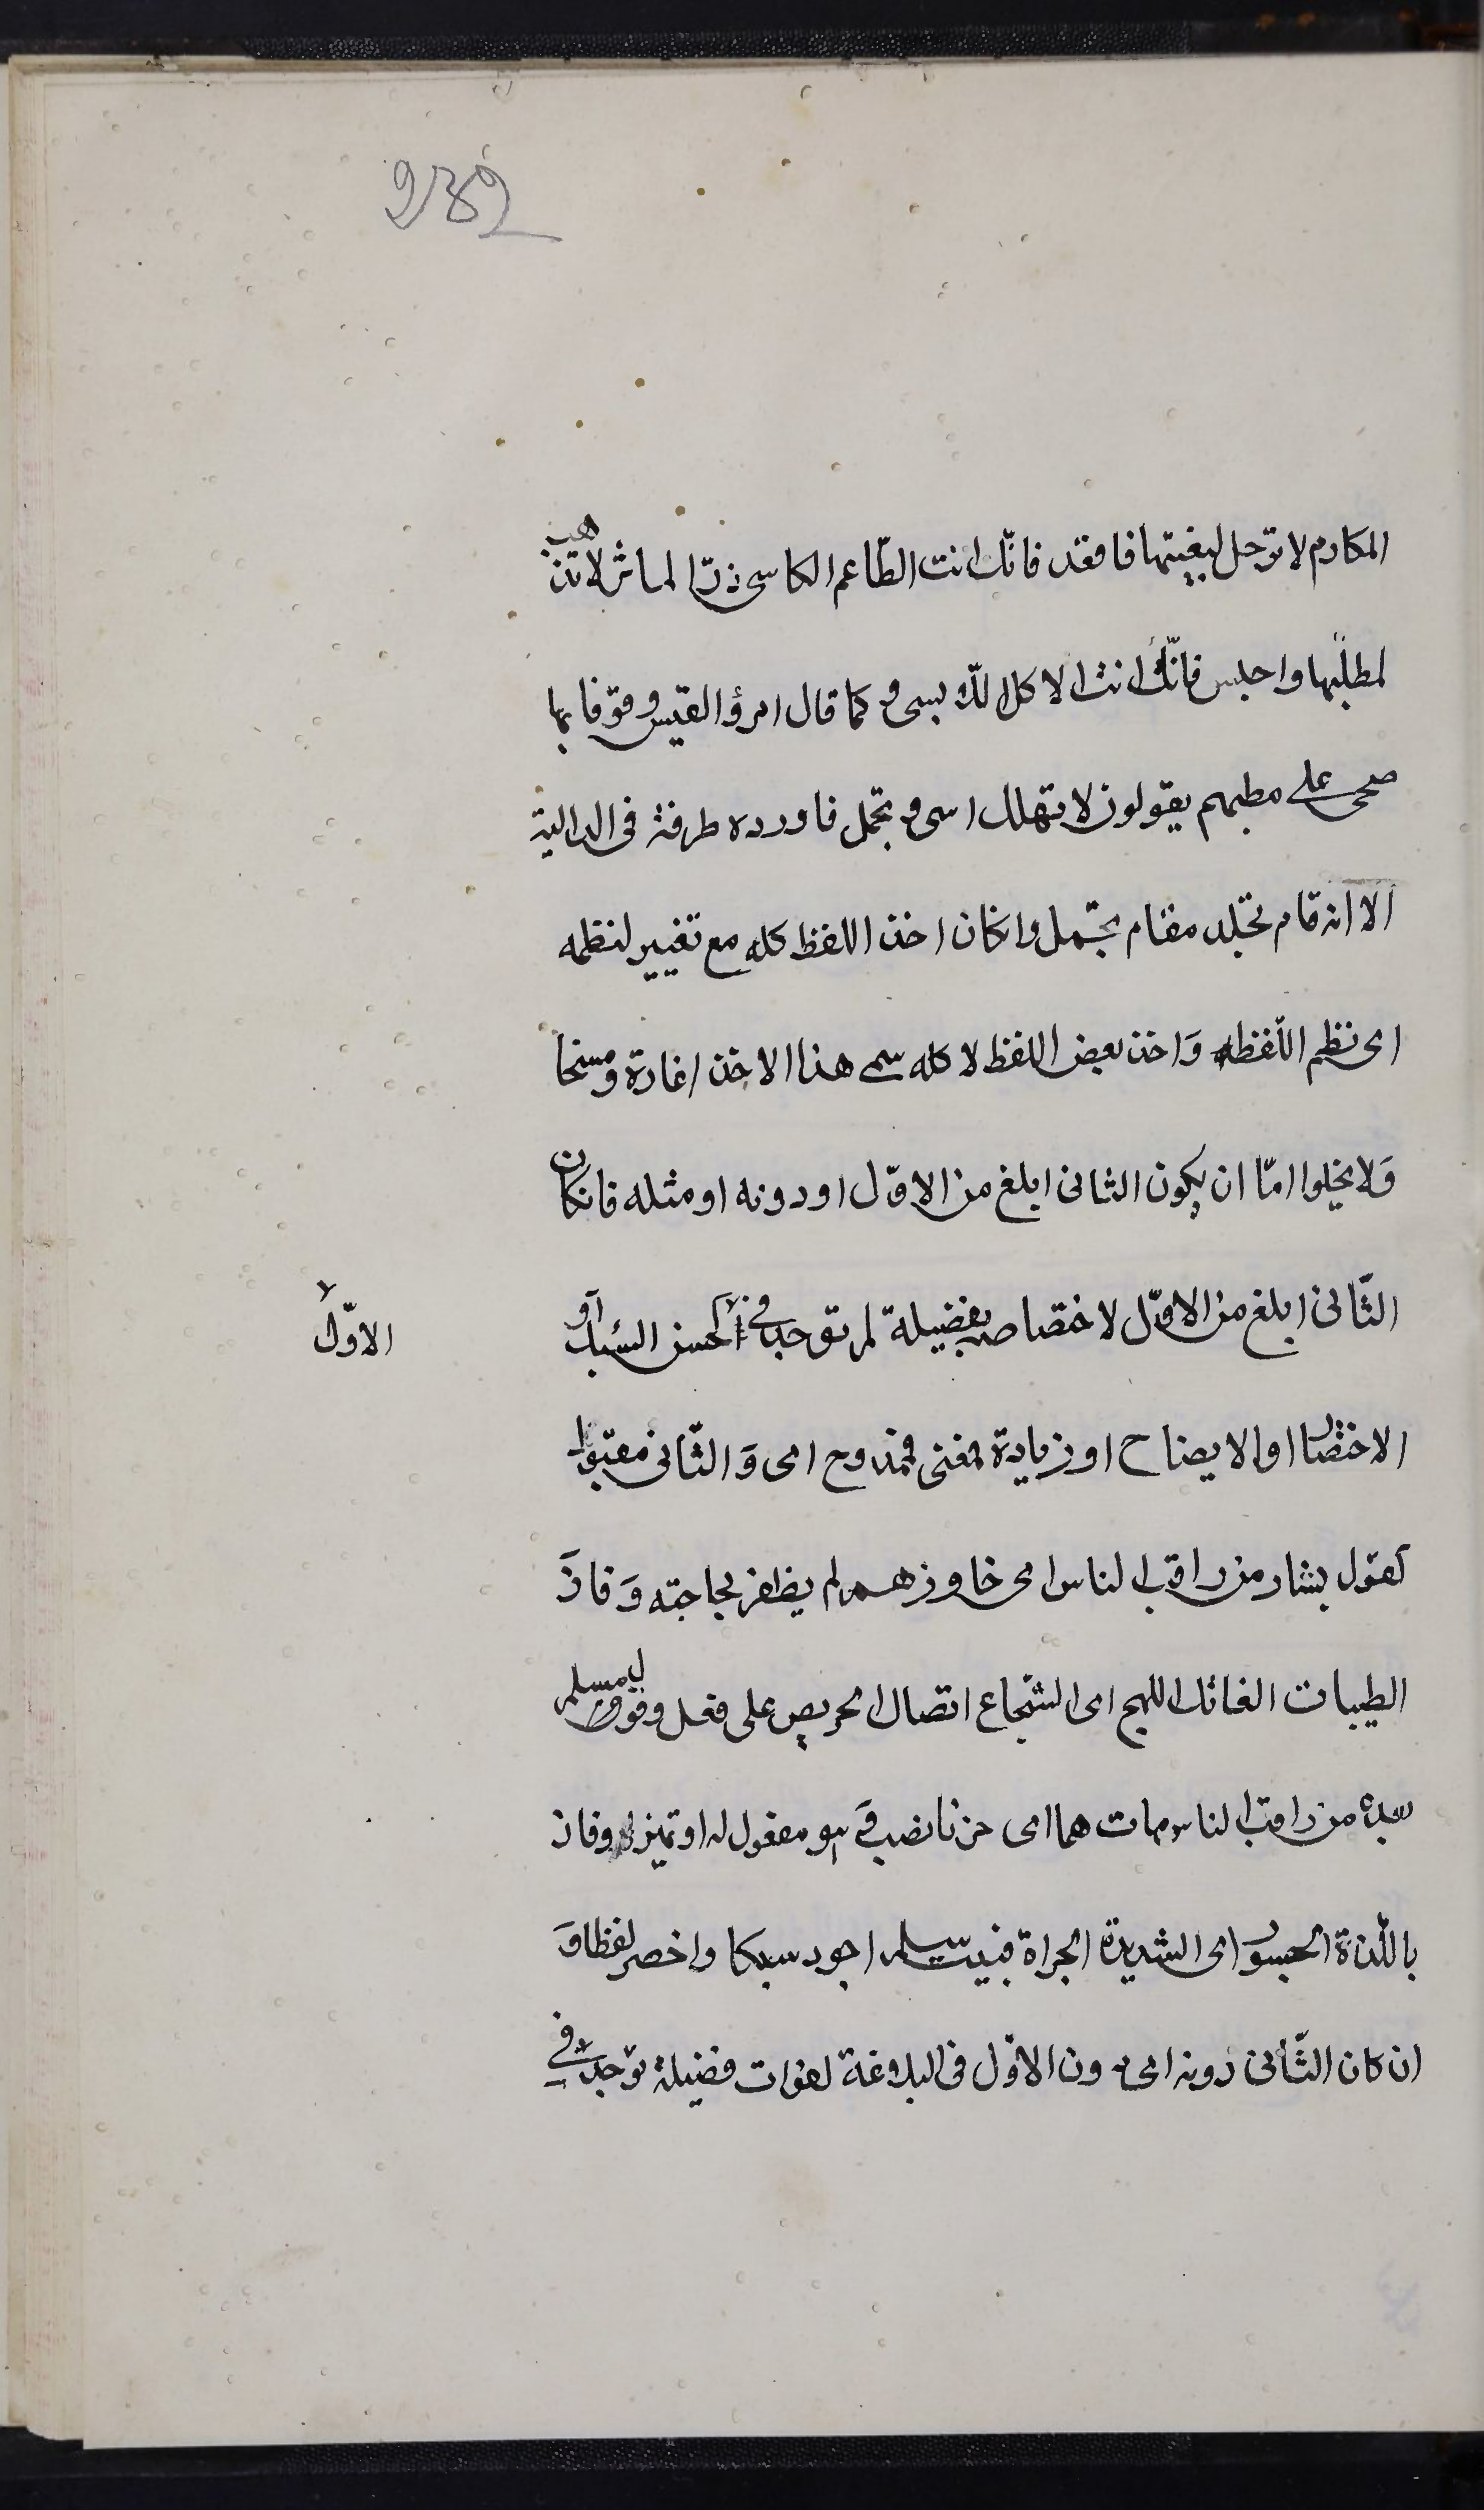 232
المكارم لا ترحل لبغيتها فاقعد فانّك انت الطّاعم الكاسى ذر المآثر لا تذهب
لمطلبها واجلس فانّك انت الاكل اللابس وكما قال امرؤ القيس وقوفا بها
صحبى على مطيهم يقولون لا تهلك اسى وتجمل فاورده طرفة فى الدالية
الا انه قام تجلد مقام تجمل وانكان اخذ اللفظ كله مع تغيير لنظمه
اى نظم اللّفظ وَاخذ بعض اللفظ لا كله سمى هذا الاخذ اغارة ومسخا
وَلا يخلوا امّا ان يكون الثانى ابلغ من الاوّل او دونه او مثله فانكان
الثّانى ابلغ من الاوّل لاختصاصه بفضيلة لم توجد فى كحسن السبك او
الاوّل
الاختصار او الايضاح او زيادة معنى فممدوح اى وَالثّانى مقبول
كقول بشار من راقب الناس اى حاوزهم لم يظفر بحاجته وَفاز
الطيبات الفاتك اللهج اى الشجاع القتال الحريص على فعل وقول مسلم
بعده من راقب الناس مات هما اى حزنا نصب فهو مفعول له او تميز وفاز
باللّذة الجسور اى الشديدة الجراة فبيت سلم اجود سبكا واخصر لفظا وَ
ان كان الثّانى دونه اى دون الاوّل فى البلاغة لفوات فضيلة توجد فى